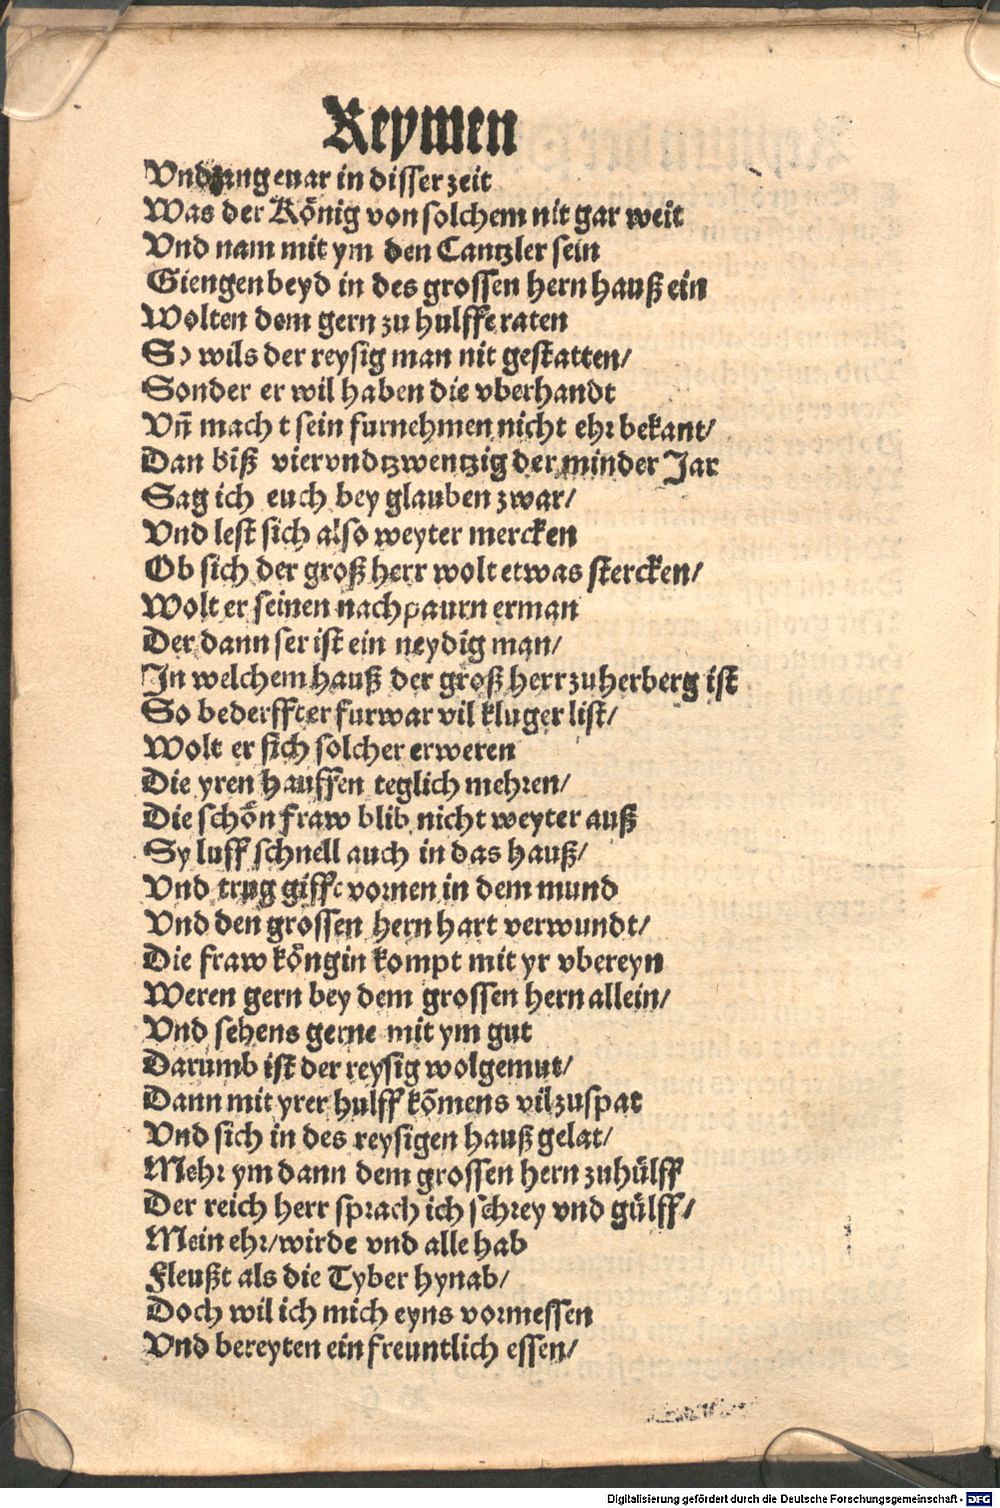 Reymen
Vnd zung enar in disser zeit
Was der König von solchem nit gar weit
Vnd nam mit ym den Cantzler sein
Giengen beyd in des grossen hern hauß ein
Wolten dem gern zu hulffe raten
So wils der reysig man nit gestatten/
Sonder er wil haben die vberhandt
Vn̄ macht sein furnehmen nicht ehr bekant/
Dan biß viervndtzwentzig der minder Jar
Sag ich euch bey glauben zwar/
Vnd lest sich also weyter mercken
Ob sich der groß herr wolt etwas stercken/
Wolt er seinen nachpaurn erman
Der dann ser ist ein neydig man/
In welchem hauß der groß herr zu herberg ist
So bederffter furwar vil kluger list/
Wolt er sich solcher erweren
Die yren hauffen teglich mehren/
Die schön fraw blib nicht weyter auß
Sy luff schnell auch in das hauß/
Vnd trug gifft vornen in dem mund
Vnd den grossen hern hart verwundt/
Die fraw köngin kompt mit yr vbereyn
Weren gern bey dem grossen hern allein/
Vnd sehens gerne mit ym gut
Darumb ist der reysig wolgemut/
Dann mit yrer hulff kōmens vil zuspat
Vnd sich in des reysigen hauß gelat/
Mehr ym dann dem grossen hern zuhülff
Der reich herr sprach ich schrey vnd gülff/
Mein ehr/wirde vnd alle hab
Fleußt als die Tyber hynab/
Doch wil ich mich eyns vormessen
Vnd bereyten ein freuntlich essen/
Digitalisierung gefördert durch die Deutsche Forschungsgemeinschaft - DFG